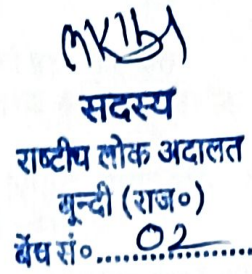 सदस्य
राष्टीय लोक अदालत
बून्दी (राज०)
बेंच सं०.....02.........